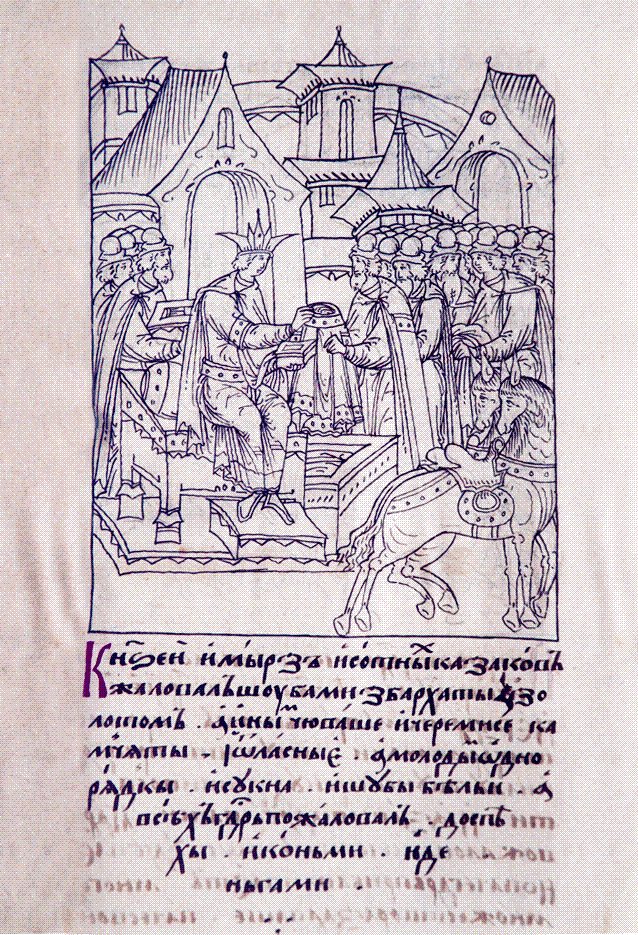 Кн҃ѕей и мырзъ и сотныⷯка заковъ
жаловалъ шоубами з бархаты з зо
лотомъ . а иныⷨ чюваше и черемисе ка
мчяты . и ѿласные . а молодыⷨ ѡдно
рядкы . и сукна . и шубы бѣльи . а
всѣхъ гд҃рь пожаловалъ . доспѣ
хы . и коньми . и де
ньгами .